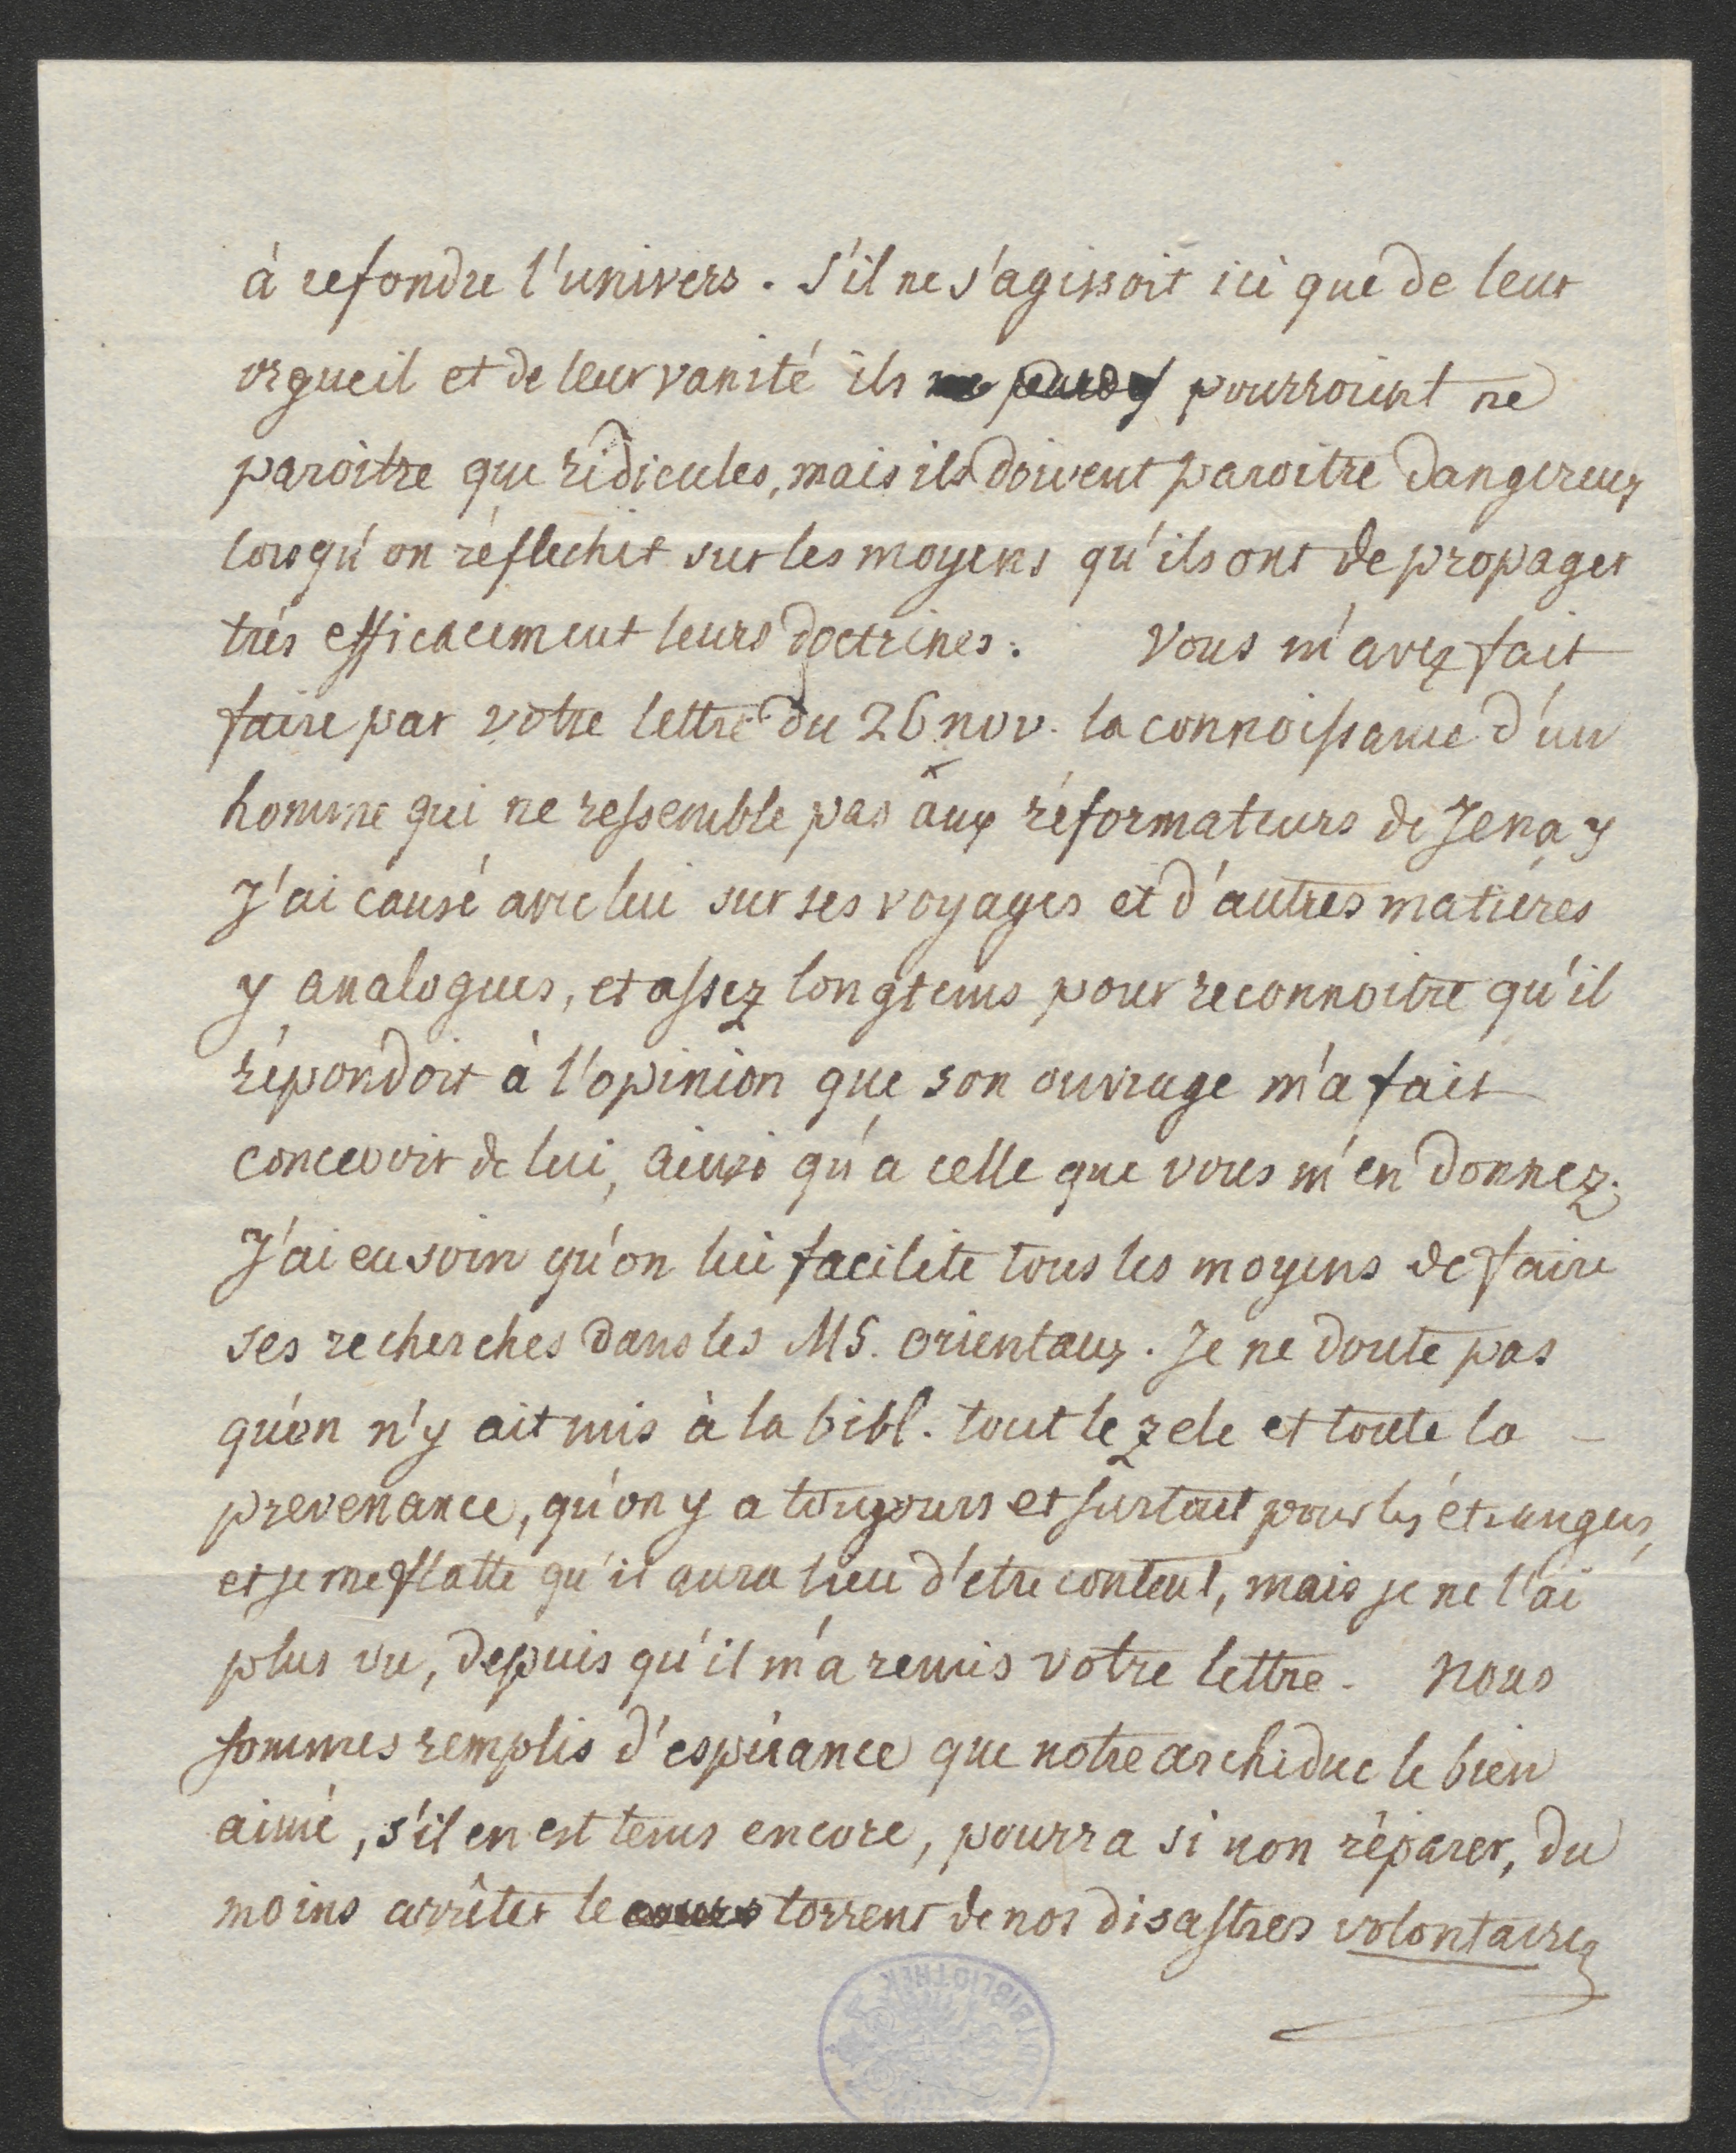 à refondre l'univers. S'il ne s'agissoit ici que de leur
orgueil et de leur vanité ils pourroient ne
paroitre que ridicules, mais ils doivent paroitre dangereux
lorsqu'on réflechit sur les moyens qu'ils ont de propager
trés efficacement leurs doctrines. Vous m'avez fait
faire par votre lettre du 26 nov. la connoissance d'un
homme qui ne ressemble pas aux réformateurs de Jena
J'ai causé avec lui sur ses voyages et d'autres matieres
y analogues, et assez longtems pour reconnoitre qu'il
répondoit à l'opinion que son ouvrage m'a fait
concevoir de lui, ainsi qu'a celle que vous m'en donnez.
J'ai eu soin qu'on lui facilite tous les moyens de faire
ses recherches dans les MS. orientaux. Je ne doute pas
qu'on n'y ait mis à la bibl. tout le zele et toute la
prevenance, qu'on y a toujours et surtout pour les étrangers,
et je me flatte qu'il aura lieu d'etre content, mais je ne l'ai
plus vu, depuis qu'il m'a remis votre lettre. Nous
sommes remplis d'espérance que notre archiduc le bien
aimé, s'il en est tems encore, pourra si non réparer, du
moins arrêter le cours torrent de nos disastres volontaires
BIBLIOTHEK